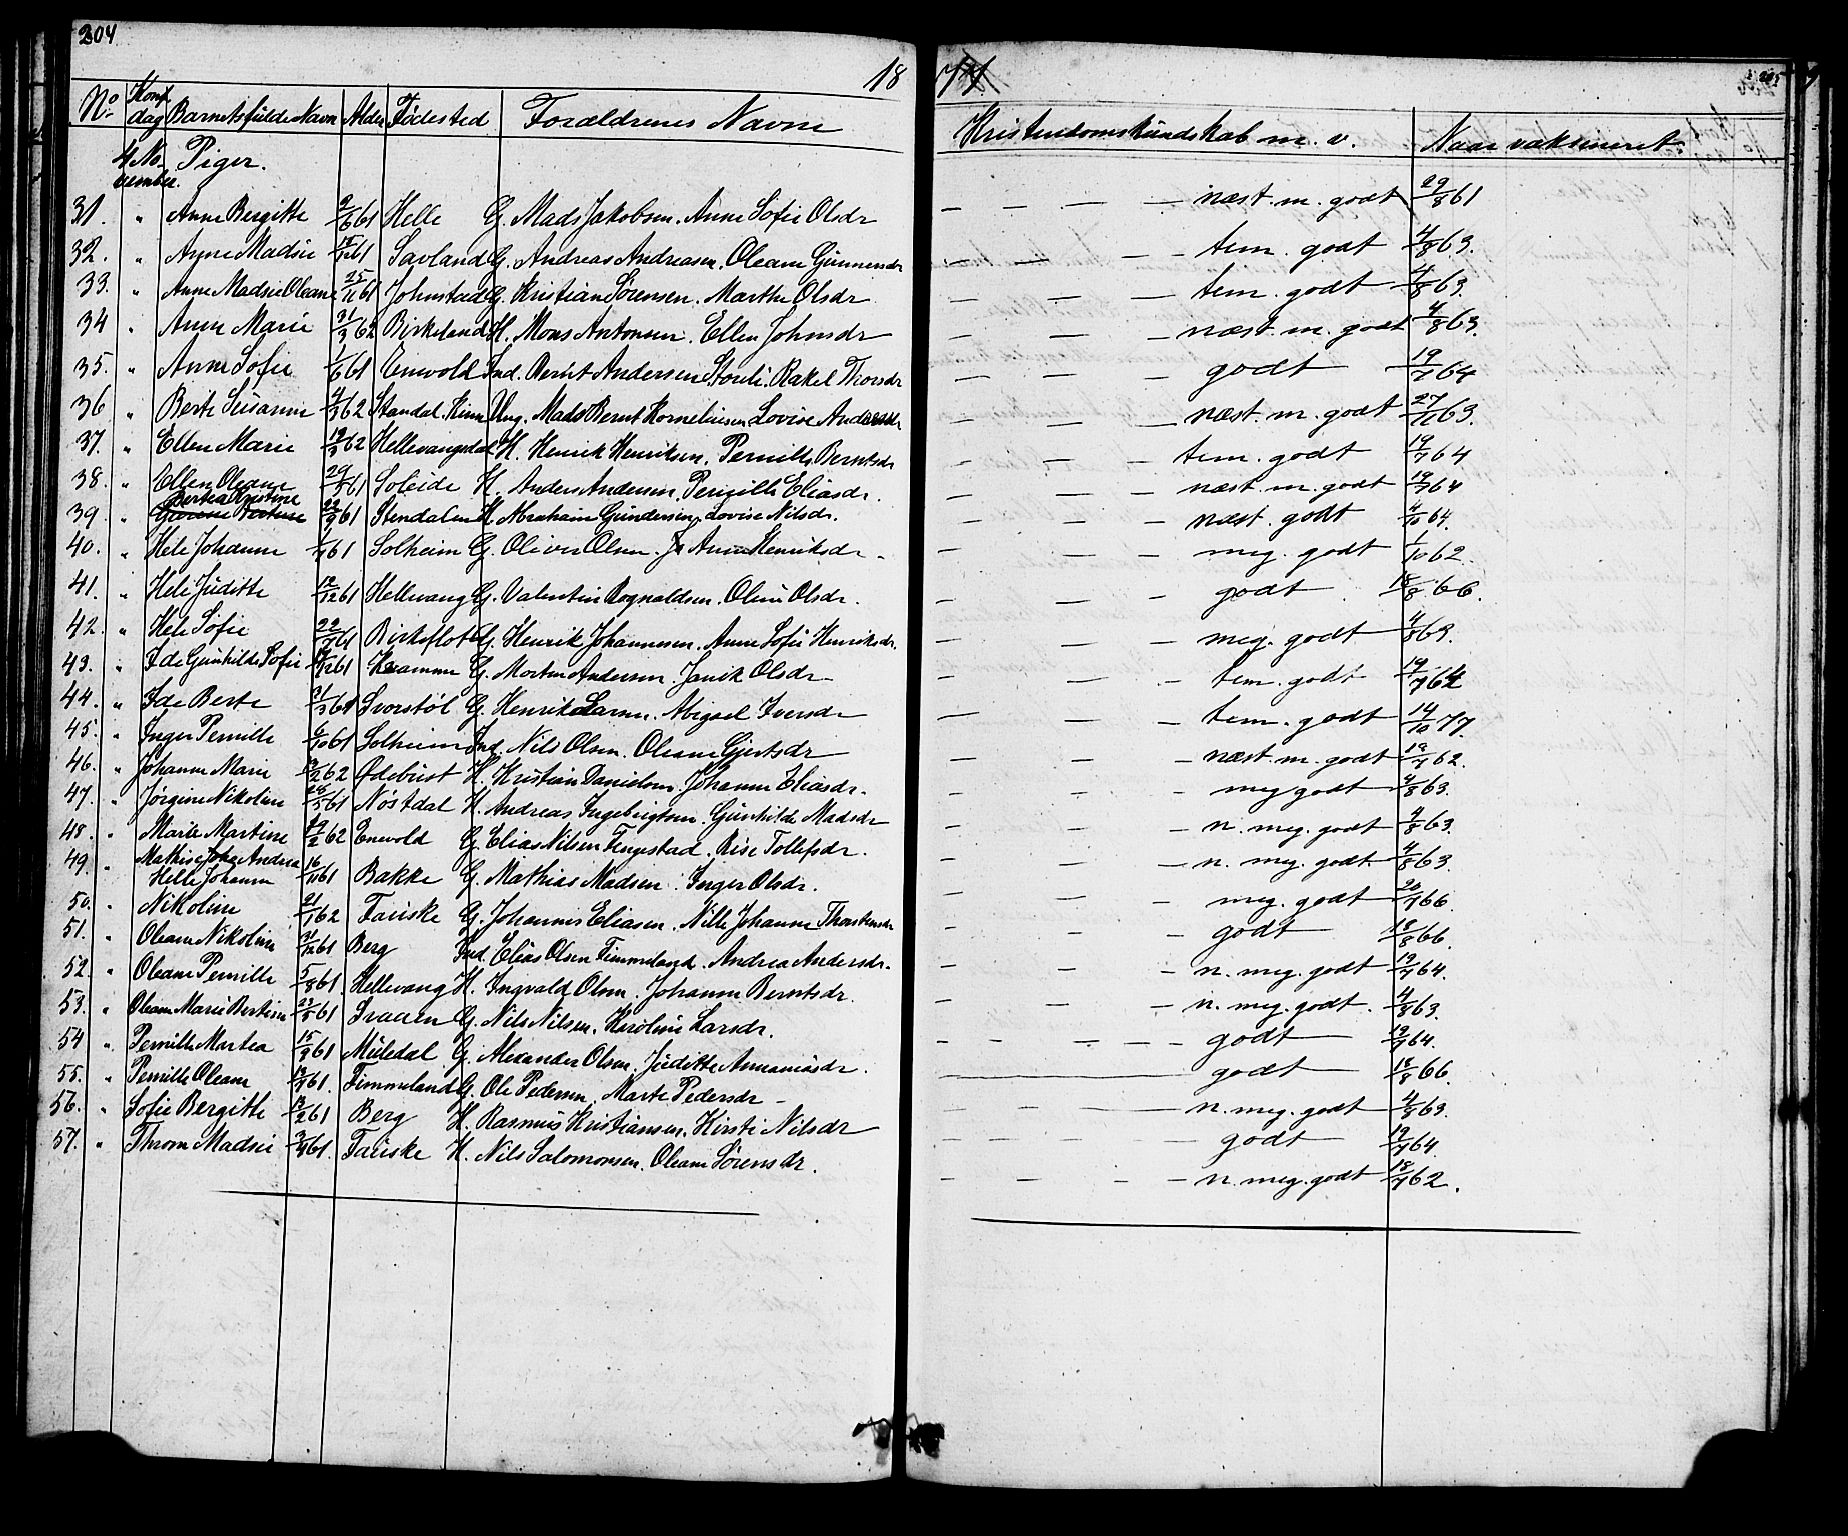 204
18
77
205
No Konf. dag Barnets fulde Navn Alder Fødested Forældrenes Navne Kristendomskundskab m. v. Naar vaksineret
4 No- Piger.
vember.
31. " Anne Bergitte 9/6 61 Helle G. Mads Jakobsen. Anne Sofie Olsdr — — — — næst. m. godt 29/8 61
32. " Anne Madsie 61 Savland G. Andreas Andreasen. Oleane Gunnersdr — — — — tem. godt 4/8 63.
33. " Anne Madsie Oleane 25/11 61 Johnstad G. Kristian Sørensen. Marthe Olsdr — — — — tem. godt 4/8 63.
34 " Anne Marie 31/3 62 Birkeland H. Mons Antonsen. Ellen Johnsdr — — — næst. m. godt 4/8 63.
35. " Anne Sofie 1/6 61 Emvold Ind. Bernt Andersen Storeli. Rakel Thorsdr — — — godt 19/7 64
36 " Berte Susanne 4/3 62 Standal. Kinn Ung. Mads Bernt Kornelius Lovise Andersdr — — — næst. m. godt 27/11 63.
37. " Ellen Marie 19/3 62 Hellevangsdal H. Henrik Henriksen. Pernille Berntsdr — — — tem. godt 19/7 64
38. " Ellen Oleane 29/7 61 Soleide H. Anders Andersen. Pernille Eliasdr. — — — næst. m. godt 19/7 64
39. " Bertea Kristine 22/9 61 Stendalen H. Abraham Gundersen, Lovise Nilsdr. — — — næst. godt 4/10 64.
40. " Hele Johanne 1/7 61 Solheim G. Oliver Olsen. Anne Henriksdr — — — meg. godt 1/10 62.
41. " Hele Juditte 12/12 61 Hellevang G. Valentin Rognaldsen. Oline Olsdr. — — — godt 18/8 66.
42. " Hele Sofie 22/8 61 Birkeflot G. Henrik Johannesen. Anne Sofie Henriksdr. — — — meg. godt 4/8 63.
43. " Ide Gunhilde Sofie 61 Kramme G. Morten Andersen. Janik Olsdr — — — tem. godt 19/7 64
44. " Ide Berte 21/3 61 Svorstøl G. Henrik Larsen. Abigael Iversdr — — — tem. godt 14/10 77.
45. " Inger Pernille 6/10 61 Solheim Ind. Nils Olsen. Oleane Gjertsdr — — — næst. m. godt 19/7 62.
46. " Johanne Marie 13/2 62 Ødebust H. Kristian Danielsen. Johanne Eliasdr. — — — meg godt 4/8 63.
47. " Jørgine Nikoline 28/5 61 Nöstdal H. Andreas Ingebrigtsen. Gunhilde Madsdr — — — n. meg. godt 4/8 63.
48. " Marie Martine 19/2 62 Emvold G. Elias Nilsen Tingestad. Rise Tollefsdr. — — — n. meg. godt 4/8 63
49. " Mathise Andrea
Helle Johanne 16/11 61 Bakke G. Mathias Madsen. Inger Olsdr. — — — meg. godt 20/7 66.
50. " Nikoline 21/1 62 Fauske G. Johannes Eliasen. Nille Johanne Thorstensdr — — — godt 18/8 66.
51. " Oleane Nikoline 31/12 61 Berg Ind. Elias Olsen Timmeland. Andrea Andersdr. — — — n. meg. godt 19/7 64.
52. " Oleane Pernille 5/8 61 Hellevang H. Ingvald Olsen. Johanne Berntsdr. — — — n. meg. godt. 4/8 63.
53. " Oleane Marie Bertine 23/5 61 Draaen G. Nils Nilsen. Karoline Larsdr. — — — godt 19/7 64.
54 " Pernille Martea 15/3 61 Muledal G. Alexander Olsen. Juditte Annaniasdr. — godt 18/8 66.
55. " Pernille Oleane 13/7 61. Timmeland G. Ole Pedersen. Marte Pedersdr — — — — n. meg. godt 4/8 63.
56. " Sofie Bergitte 13/2 61 Berg H. Rasmus Kristiansen. Kirsti Nilsdr — — — godt 19/7 64.
57. " Thrine Madsie 3/4 61. Fauske H. Nils Salomonsen. Oleane Sørensdr. — — — — n. meg. godt 18/7 62.